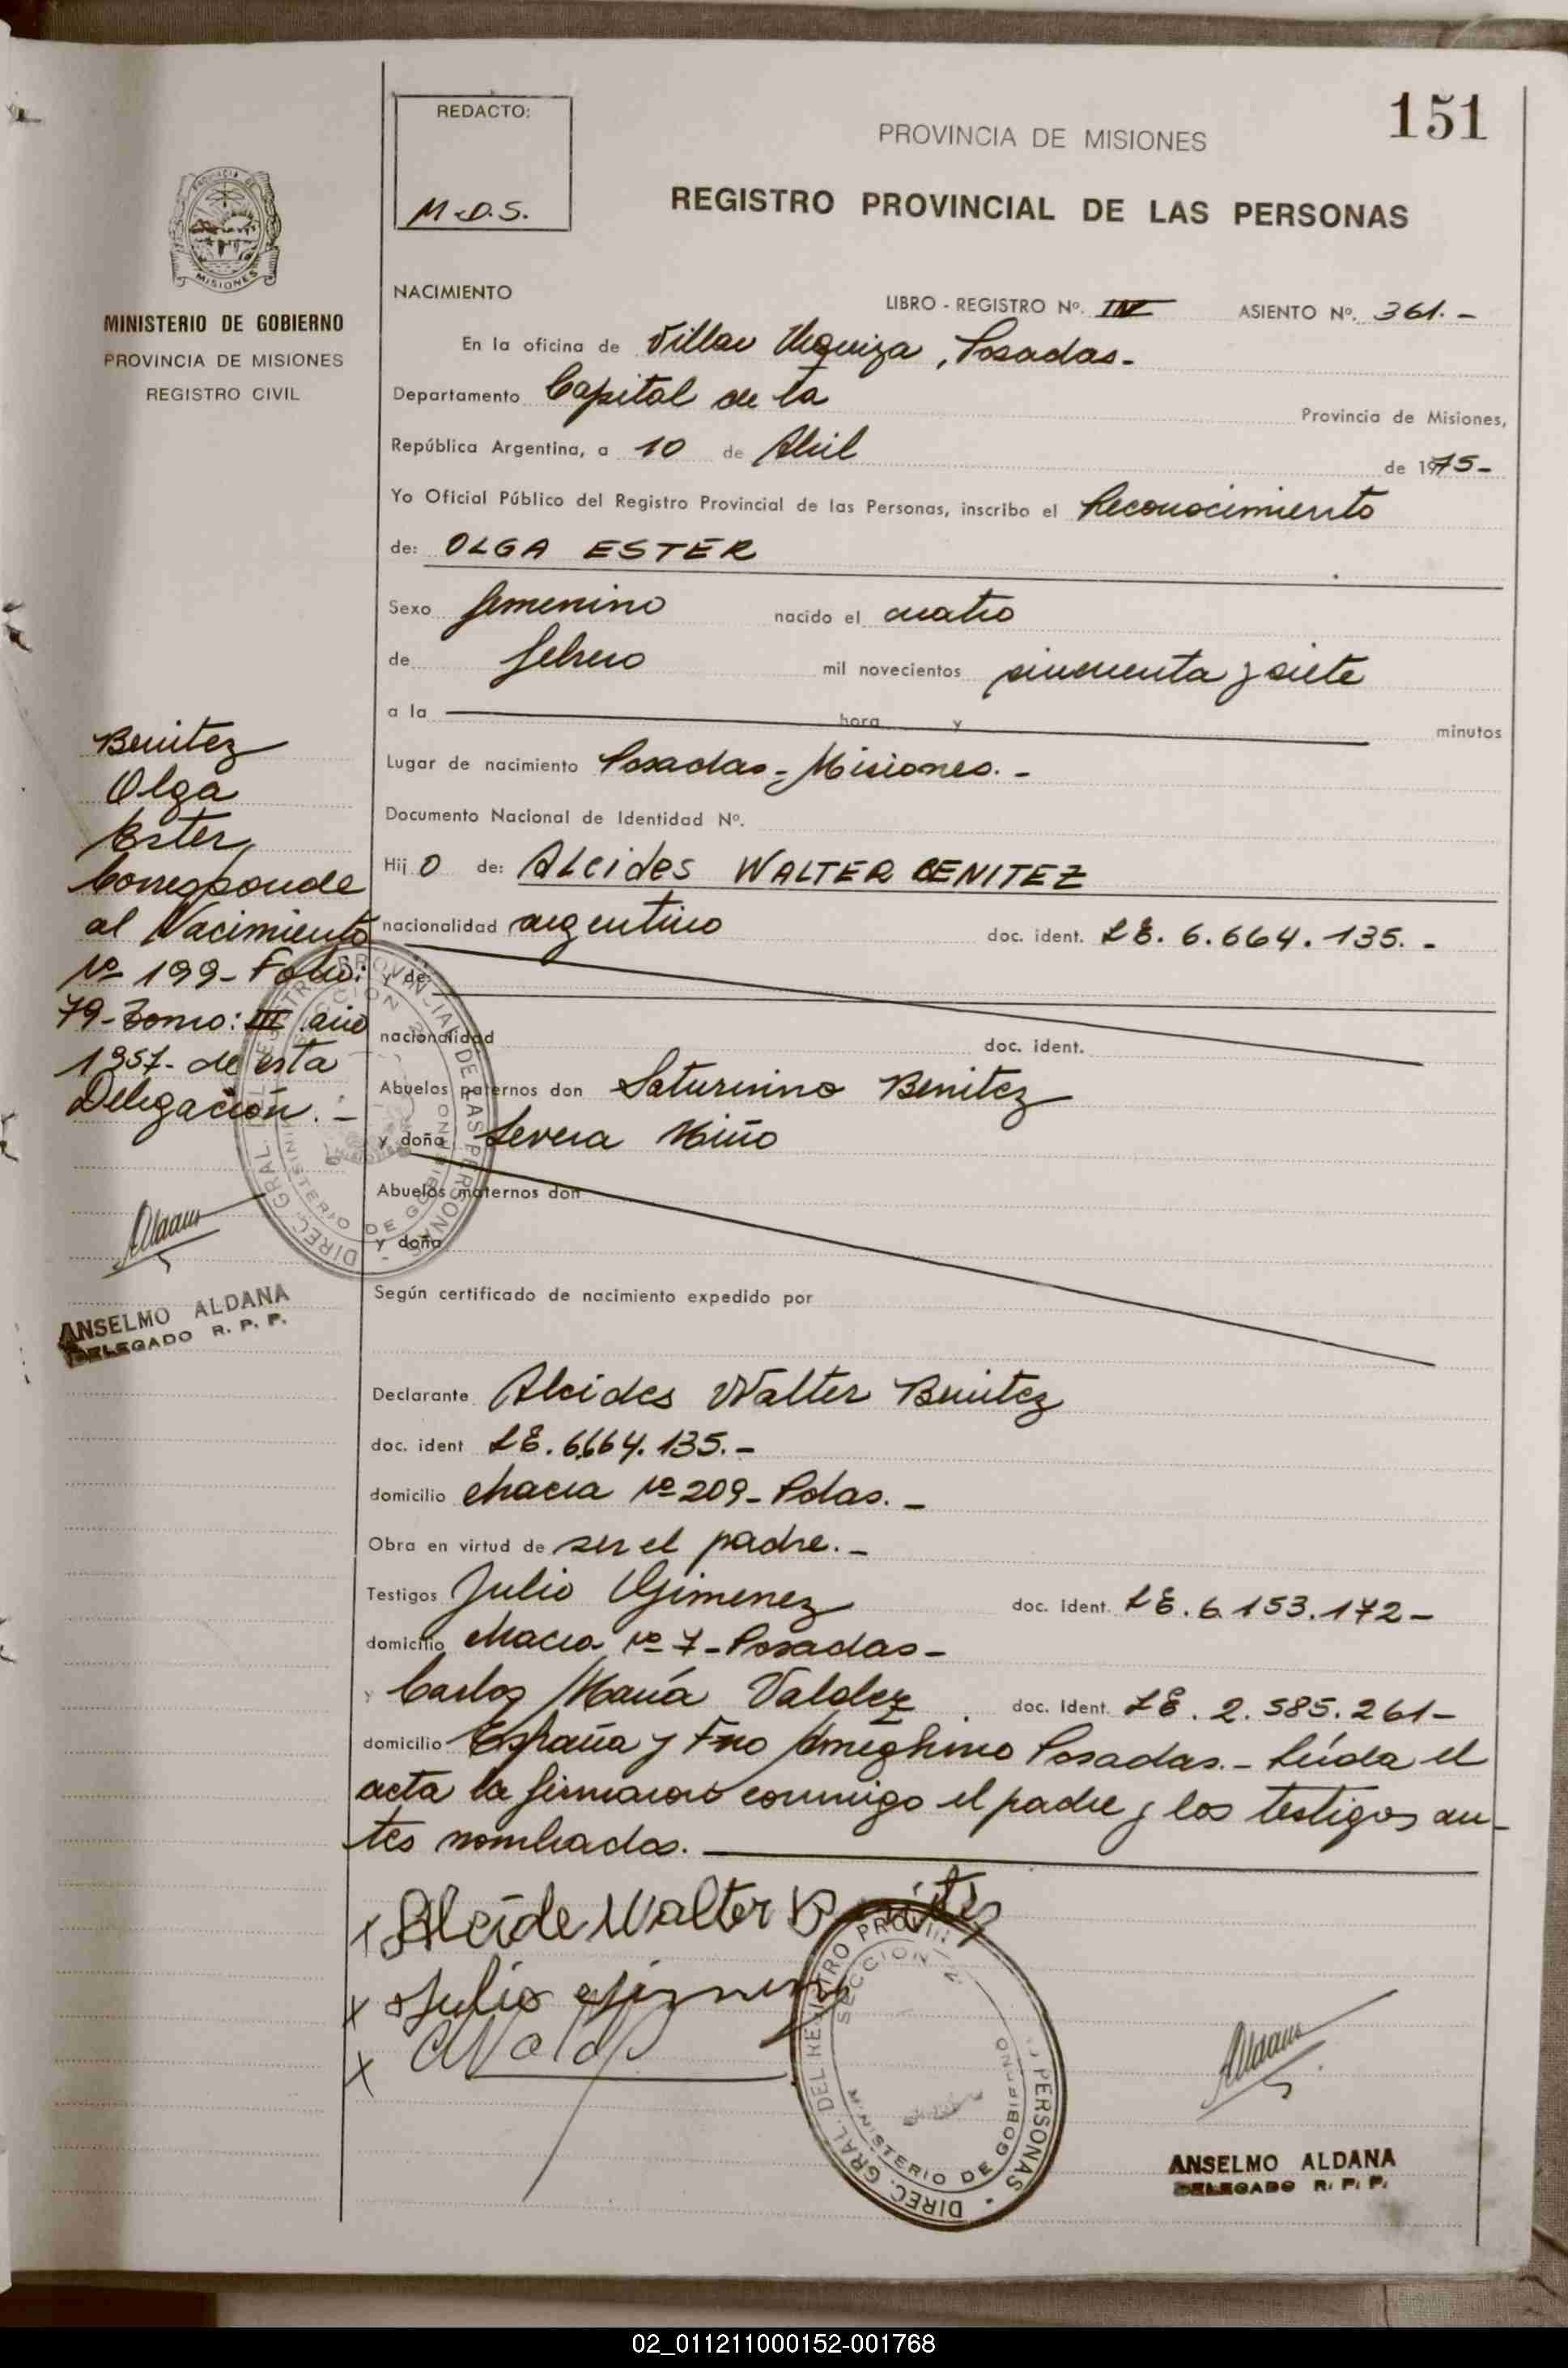 151
REDACTO:
M.D.S.
PROVINCIA DE MISIONES
REGISTRO PROVINCIAL DE LAS PERSONAS
PROVINCIA DE
MISIONES
MINISTERIO DE GOBIERNO
PROVINCIA DE MISIONES
REGISTRO CIVIL
NACIMIENTO
LIBRO - REGISTRO Nº. IV ASIENTO Nº. 361.-
En la oficina de Villa Urquiza, Posadas-
Departamento Capital de la Provincia de Misiones,
República Argentina, a 10 de Abril de 1975-
Yo Oficial Público del Registro Provincial de las Personas, inscribo el Reconocimiento
de: OLGA ESTER
Sexo femenino nacido el cuatro
de febrero mil novecientos cincuenta y siete
a la hora y minutos
Lugar de nacimiento Posadas-Misiones.-
Documento Nacional de Identidad Nº.
Hij o de: Alcides WALTER BENITEZ
nacionalidad argentino doc. ident. LE. 6.664.135.-
y de:
nacionalidad doc. ident.
Abuelos paternos don Saturnino Benitez
y doña Severa Miño
Abuelos maternos don
y doña
Según certificado de nacimiento expedido por
Declarante Alcides Walter Benitez
doc. ident LE. 6.664.135.-
domicilio chacra Nº 209- Pdas.-
Obra en virtud de ser el padre.-
Testigos Julio Gimenez doc. Ident. LE. 6.153.172-
domicilio chacra Nº 7-Posadas-
y Carlos María Valdez doc. Ident. LE. 2.585.261-
domicilio España y Fno Ameghino Posadas.- Leída el
acta la firmaron conmigo el padre y los testigos an-
tes nombrados.
x Alcide Walter Benitez
x Julio Gimenez
x
Benitez
Olga
Ester,
Corresponde
al Nacimiento
Nº 199- Folio:
79-Tomo: III año
1957- de esta
Delegación.-
ANSELMO ALDANA
DELEGADO R. P. P.
DIREC. GRAL. DEL REGISTRO PROVINCIAL DE LAS PERSONAS
SECCION
MINISTERIO DE GOBIERNO
DIREC. GRAL. DEL REGISTRO PROVIN PERSONAS
SECCION
MINISTERIO DE GOBIERNO
ANSELMO ALDANA
DELEGADO R. P. P.
02_011211000152-001768